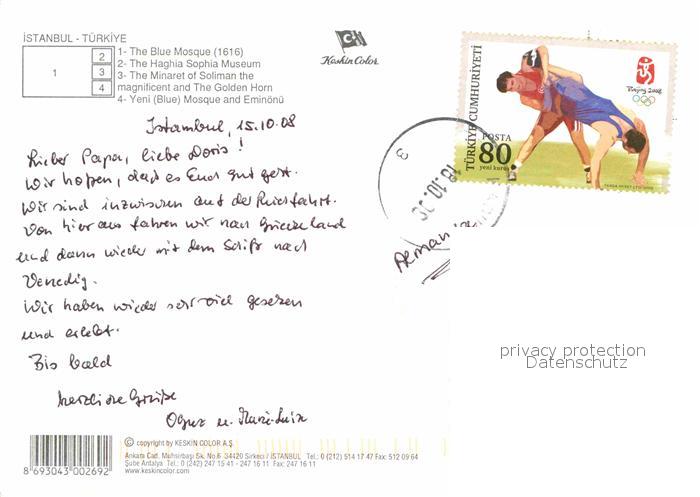 İSTANBUL - TÜRKİYE
1- The Blue Mosque (1616)
2- The Haghia Sophia Museum
3- The Minaret of Soliman the
magnificent and The Golden Horn
4- Yeni (Blue) Mosque and Eminönü
1
2
3
4
Keskin Color
TÜRKİYE CUMHURİYETİ
POSTA
80
yeni kuruş
Beijing 2008
3
Istambul, 15.10.08
Lieber Papa, liebe Doris!
Wir hoffen, dass es Euch gut geht.
Wir sind inzwischen auf der Rückfahrt.
Von hier aus fahren wir nach Griechenland
und dann wieder mit dem Schiff nach
Venedig.
Wir haben wieder sehr viel gesehen
und erlebt.
Bis bald
herzliche Grüße
Oguz u. Marie-Luise
privacy protection
Datenschutz
8 693043 002692
© copyright by KESKİN COLOR A.Ş.
Ankara Cad. Muhsirbaşı Sk. No.6 34420 Sirkeci / İSTANBUL Tel.: 0 (212) 514 17 47 Fax: 512 09 64
Şube Antalya Tel.: 0 (242) 247 15 41 - 247 16 11 Fax: 247 16 11
www.keskincolor.com